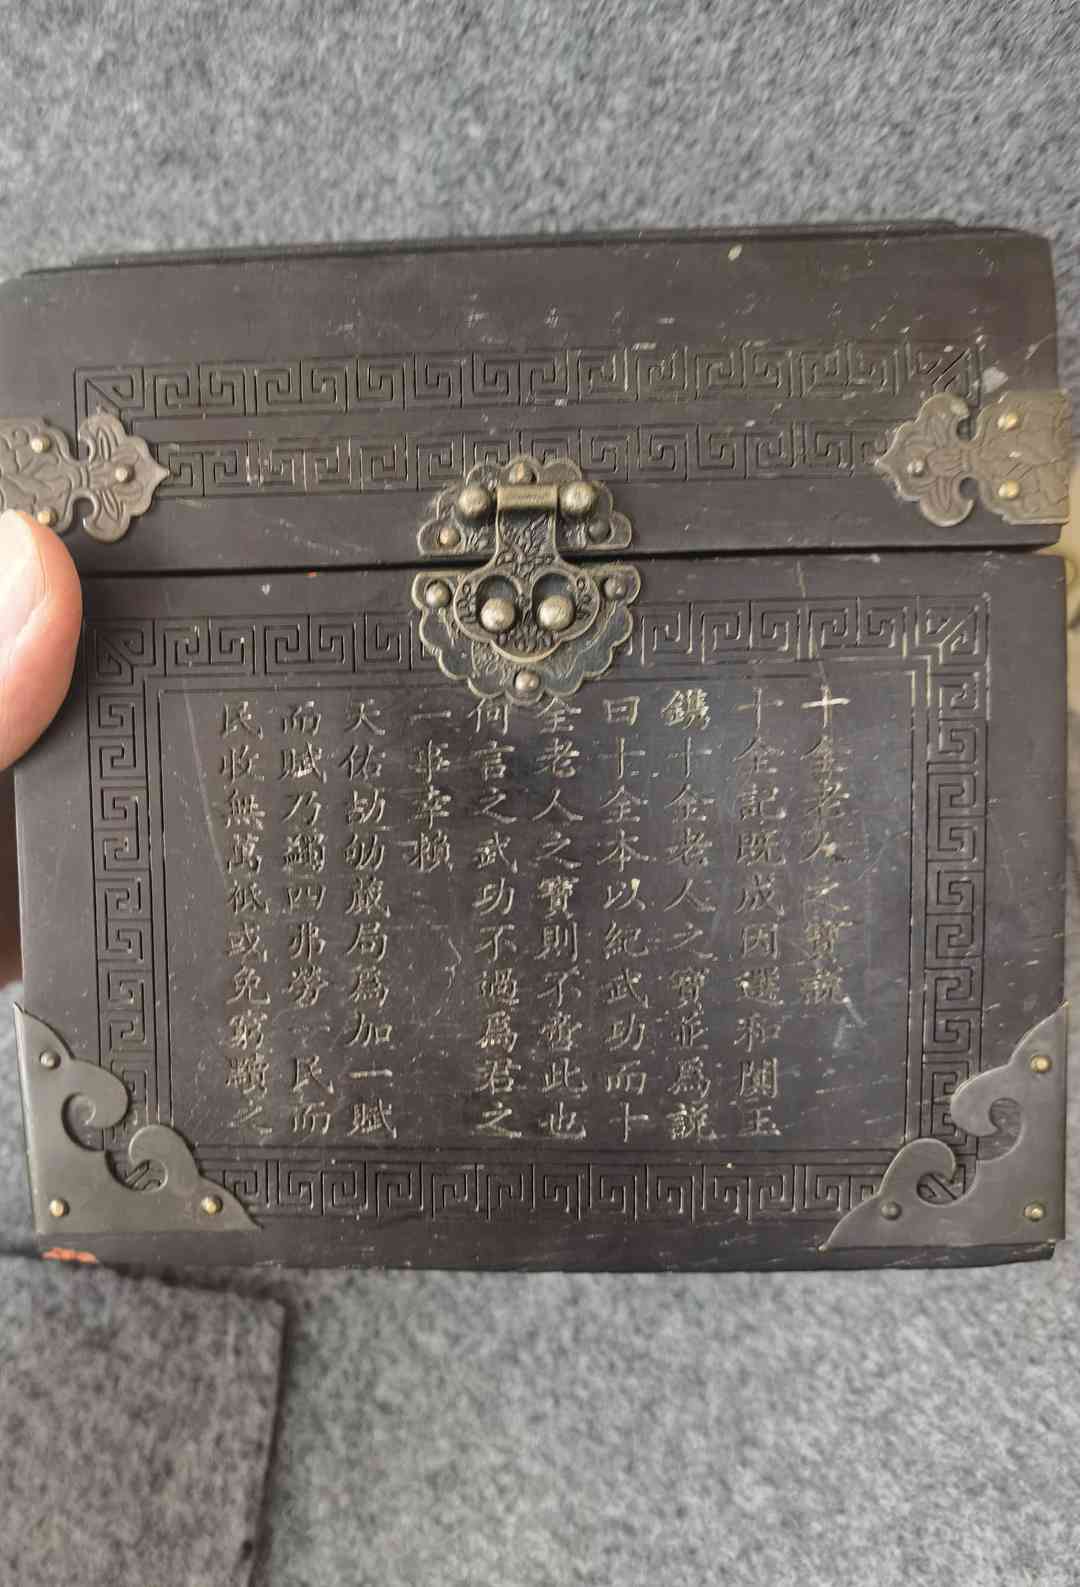 十全老人之寶說
十全記既成因選和闐玉
鐫十全老人之寶並爲說
曰十全本以紀武功而十
全老人之寶則不啻此也
何言之武功不過爲君之
一事幸賴
天佑劼劬蕆局爲加一賦
而賦乃蠲四弗勞一民而
民收無萬祗或免窮黷之